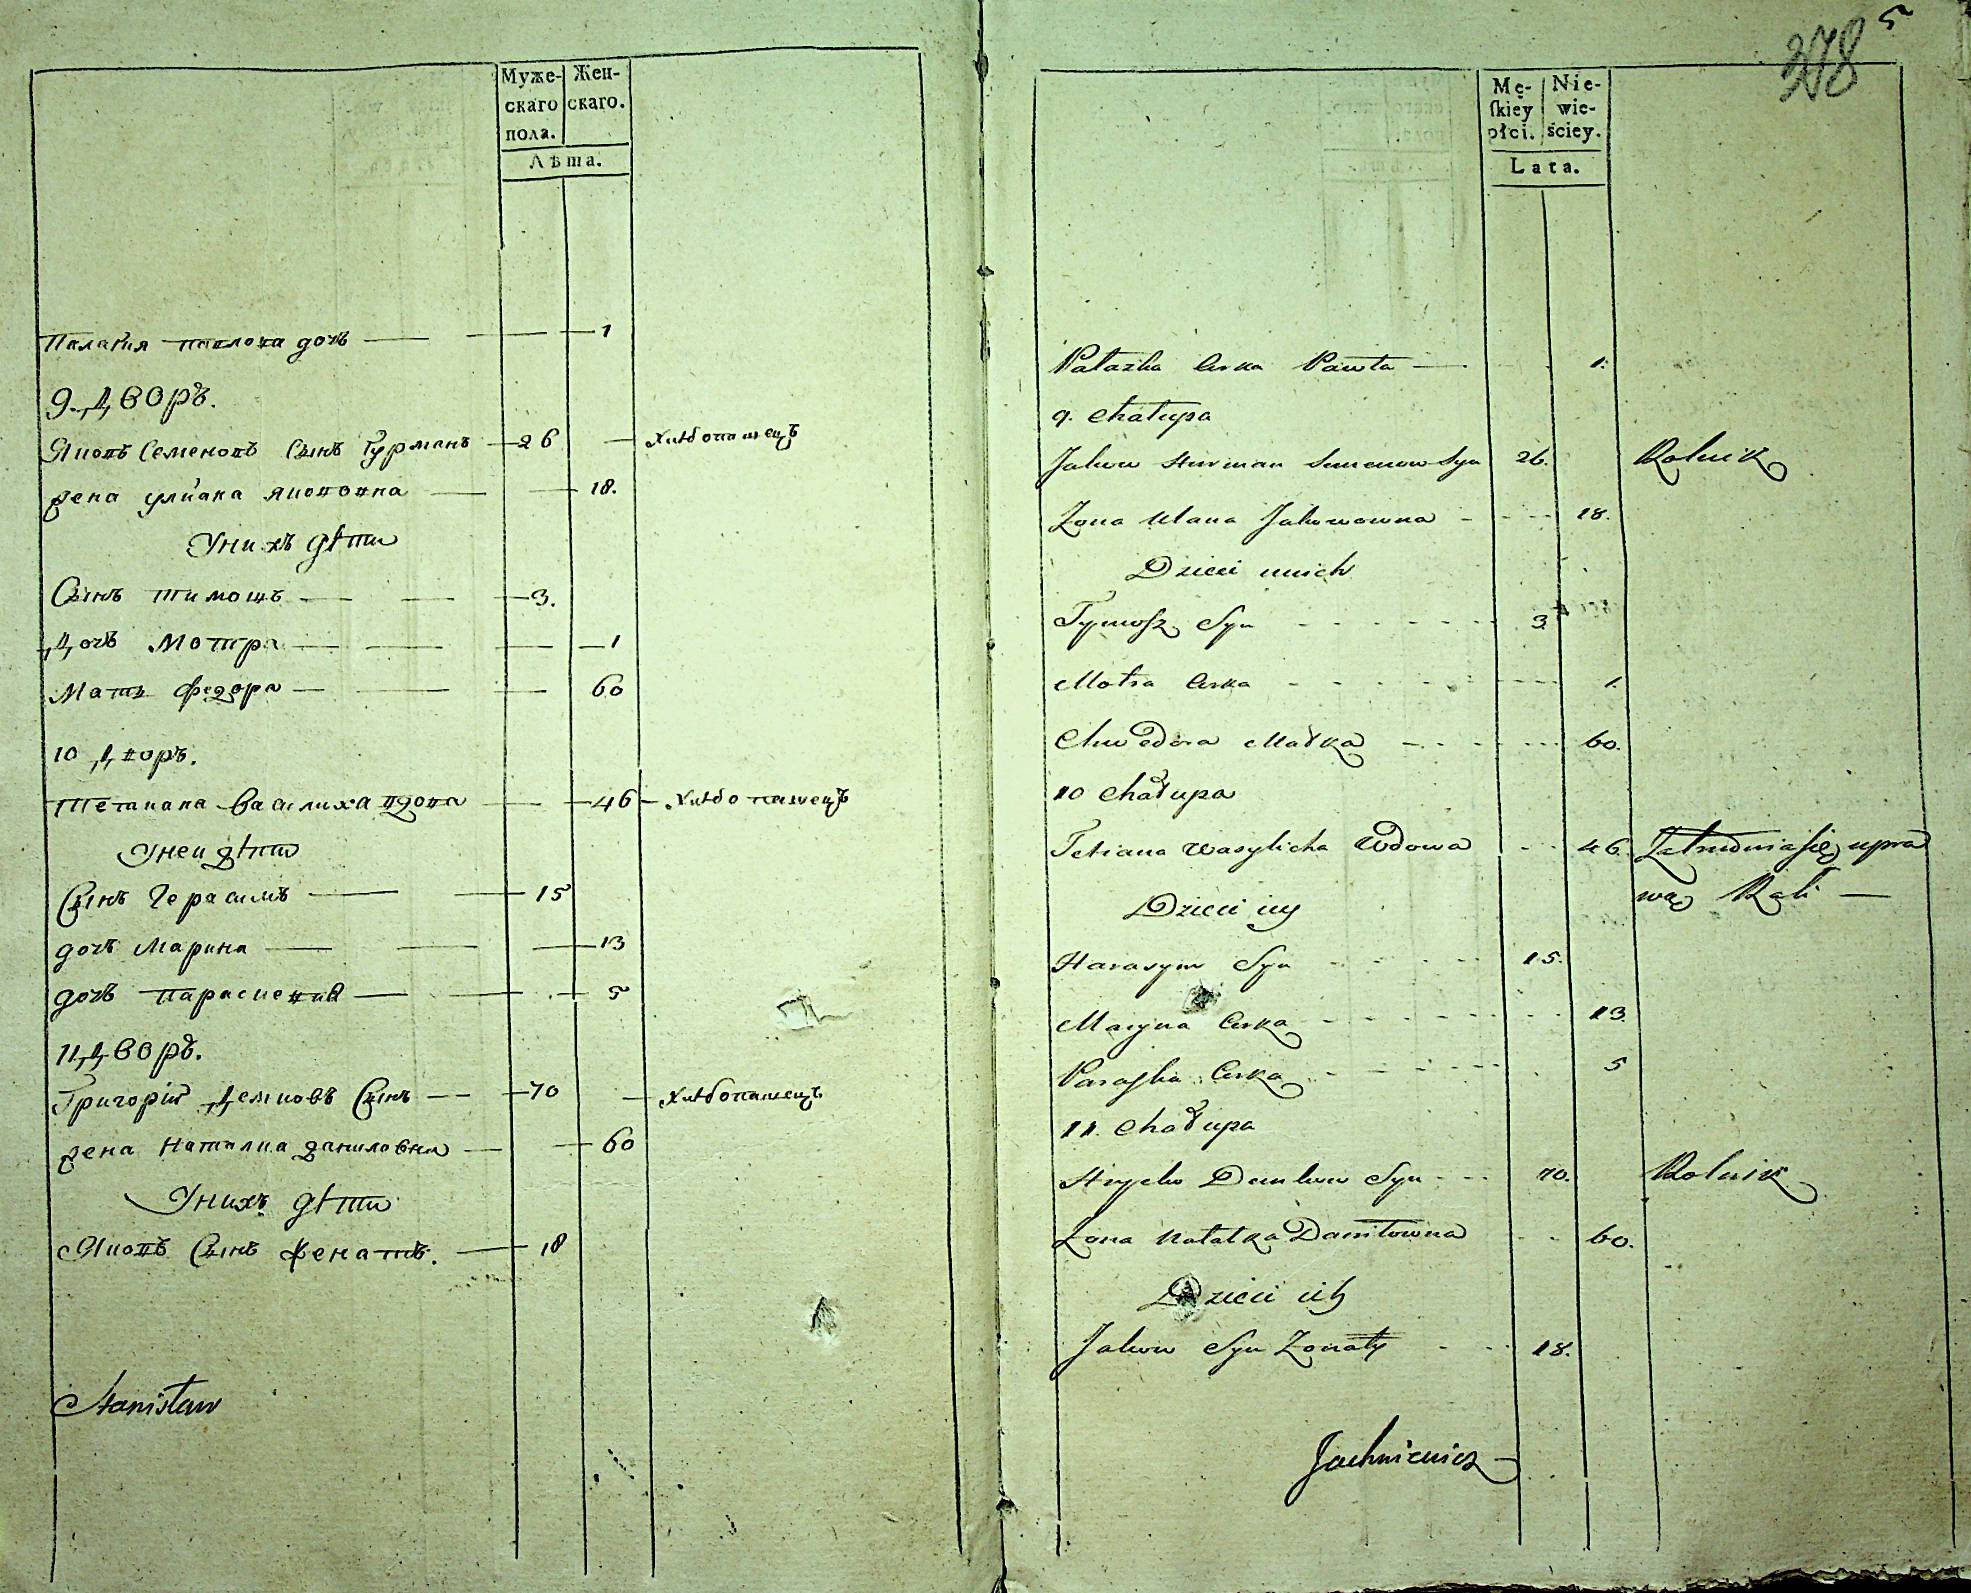 Муже-
скаго
пола.
Жен-
скаго.
Лѣта.
Палагия павлова дочь 1
9. Дворъ.
Яковъ Семеновъ Сынъ Гурманъ 26 хлѣбопашецъ
жена улиана якововна 18.
Унихъ дѣти
Сынъ тимошъ 3.
Дочь Мотра 1
Мать федора 60
10 Дворъ.
Тетиана василиха вдова 46 хлѣбопашецъ
Унеи дѣти
Сынъ Герасимъ 15
дочь Марина 13
дочь парасцевия 5
11 Дворъ.
Григорій Демковъ Сынъ 70 хлѣбопашецъ
жена Наталиа даниловна 60
Унихъ дѣти
Яковъ Сынъ женатъ. 18
Stanisław
378
5
Mę-
skiey
płci.
Nie-
wie-
ściey.
Lata.
Pałazka Curka Pawła 1.
9. Chałupa
Jakow Hurman Semenow Syn 26. Rolnik
Zona Ulana Jakowowna 18.
Dzieci unich
Tymosz Syn 3
Motra Curka 1.
Chwedora Matka 60.
10 Chałupa
Tetiana Wasylicha Wdowa 46. Zatrudnia się upra
wą Roli
Dzieci iey
Harasym Syn 15.
Maryna Curka 13.
Paraska Curka 5
11. Chałupa
Hryćko Demkow Syn 70. Rolnik
Zona Natałka Daniłowna 60.
Dzieci ich
Jakow Syn Zonaty 18.
Jachniewicz